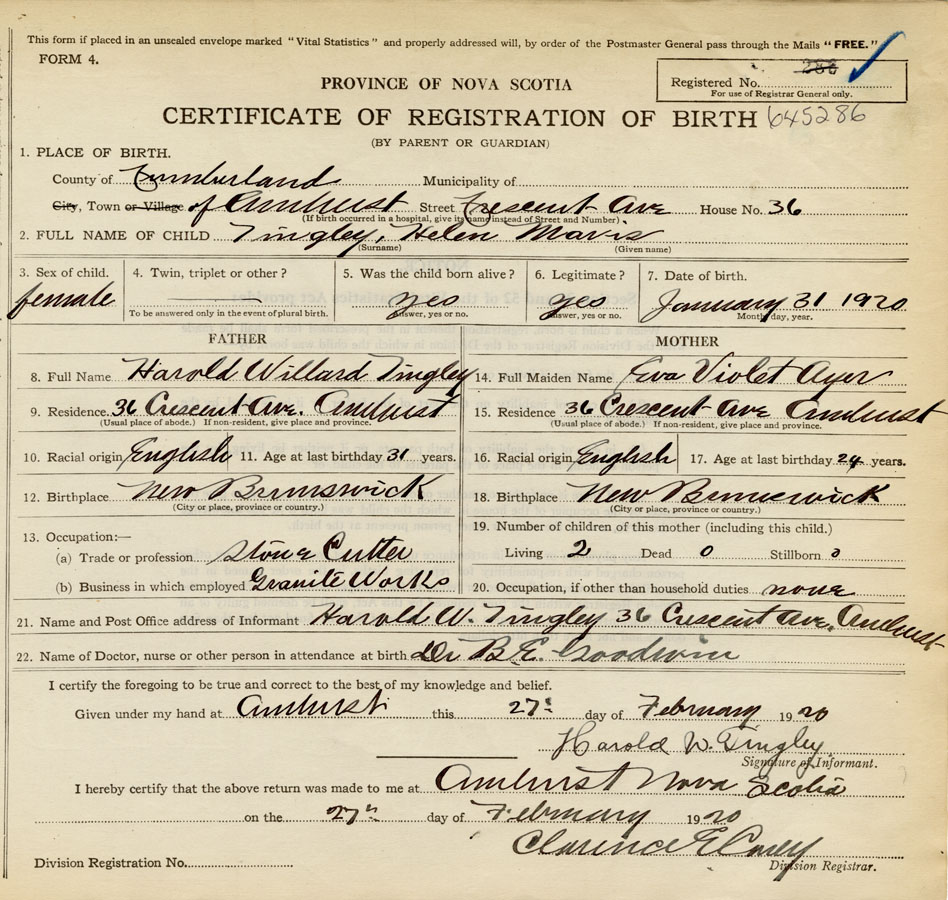 This form if placed in an unsealed envelope marked "Vital Statistics" and properly addressed will, by order of the Postmaster General pass through the Mails "FREE."
FORM 4.
286
Registered No.
For use of Registrar General only.
PROVINCE OF NOVA SCOTIA
CERTIFICATE OF REGISTRATION OF BIRTH 645286
(BY PARENT OR GUARDIAN)
1. PLACE OF BIRTH.
County of Cumberland Municipality of
City, Town or Village of Amherst Street Crescent Ave House No. 36
(If birth occurred in a hospital, give its name instead of Street and Number)
2. FULL NAME OF CHILD Tingley, Helen Mavis
(Surname) (Given name)
3. Sex of child. 4. Twin, triplet or other? 5. Was the child born alive? 6. Legitimate? 7. Date of birth.
female yes yes January 31 1920
To be answered only in the event of plural birth. Answer, yes or no. Answer, yes or no. Month, day, year.
FATHER MOTHER
8. Full Name Harold Willard Tingley 14. Full Maiden Name Eva Violet Ayer
9. Residence. 36 Crescent Ave. Amherst 15. Residence 36 Crescent Ave Amherst
(Usual place of abode.) If non-resident, give place and province. (Usual place of abode.) If non-resident, give place and province.
10. Racial origin English 11. Age at last birthday 31 years. 16. Racial origin English 17. Age at last birthday 24 years.
12. Birthplace New Brunswick 18. Birthplace New Brunswick
(City or place, province or country.) (City or place, province or country.)
13. Occupation:— 19. Number of children of this mother (including this child.)
(a) Trade or profession Stone Cutter Living 2 Dead 0 Stillborn 0
(b) Business in which employed Granite Works 20. Occupation, if other than household duties none
21. Name and Post Office address of Informant Harold W. Tingley 36 Crescent Ave. Amherst
22. Name of Doctor, nurse or other person in attendance at birth Dr B.E. Goodwin
I certify the foregoing to be true and correct to the best of my knowledge and belief.
Given under my hand at Amherst this 27th day of February 1920
Harold W. Tingley
Signature of Informant.
I hereby certify that the above return was made to me at Amherst Nova Scotia
on the 27th day of February 1920
Clarence E Casey
Division Registration No. Division Registrar.